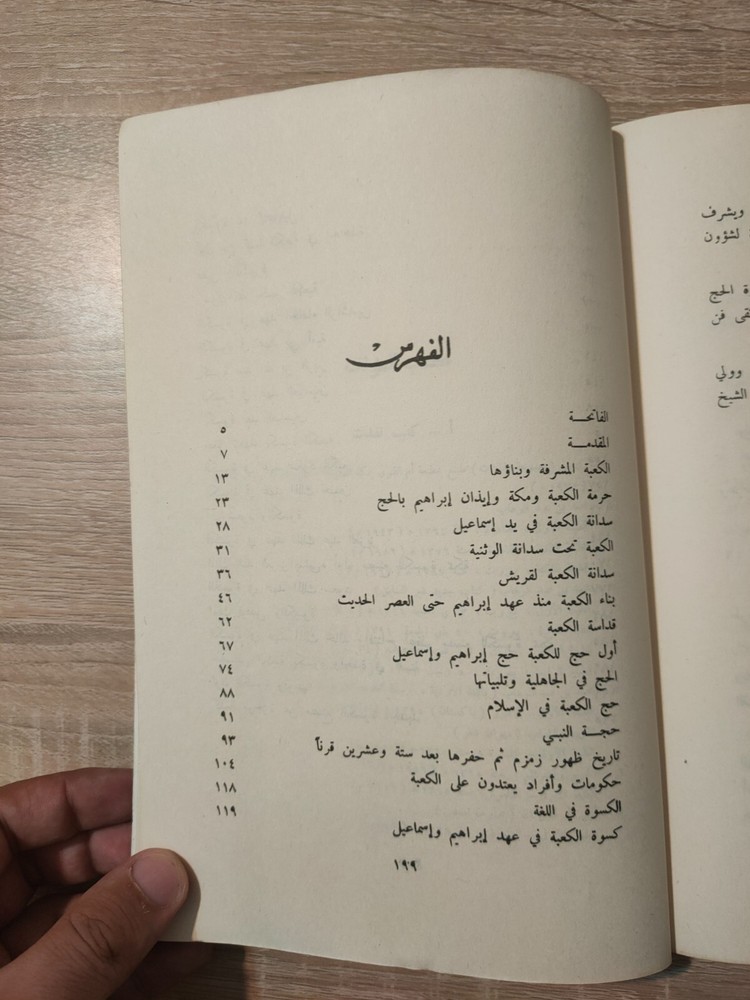 ويشرف
لشؤون
ة الحج
قى فن
وولي
الشيخ
الفهرس
الفاتحـــة ٥
المقدمـــة ٧
الكعبة المشرفة وبناؤها ١٣
حرمة الكعبة ومكة وإيذان إبراهيم بالحج ٢٣
سدانة الكعبة في يد إسماعيل ٢٨
الكعبة تحت سدانة الوثنية ٣١
سدانة الكعبة لقريش ٣٦
بناء الكعبة منذ عهد إبراهيم حتى العصر الحديث ٤٦
قداسة الكعبة ٦٢
أول حج للكعبة حج إبراهيم وإسماعيل ٦٧
الحج في الجاهلية وتلبياتها ٧٤
حج الكعبة في الإسلام ٨٨
حجــة النبـي ٩١
تاريخ ظهور زمزم ثم حفرها بعد ستة وعشرين قرناً ٩٣
حكومات وأفراد يعتدون على الكعبة ١٠٤
الكسوة في اللغة ١١٨
كسوة الكعبة في عهد إبراهيم وإسماعيل ١١٩
١٩٩